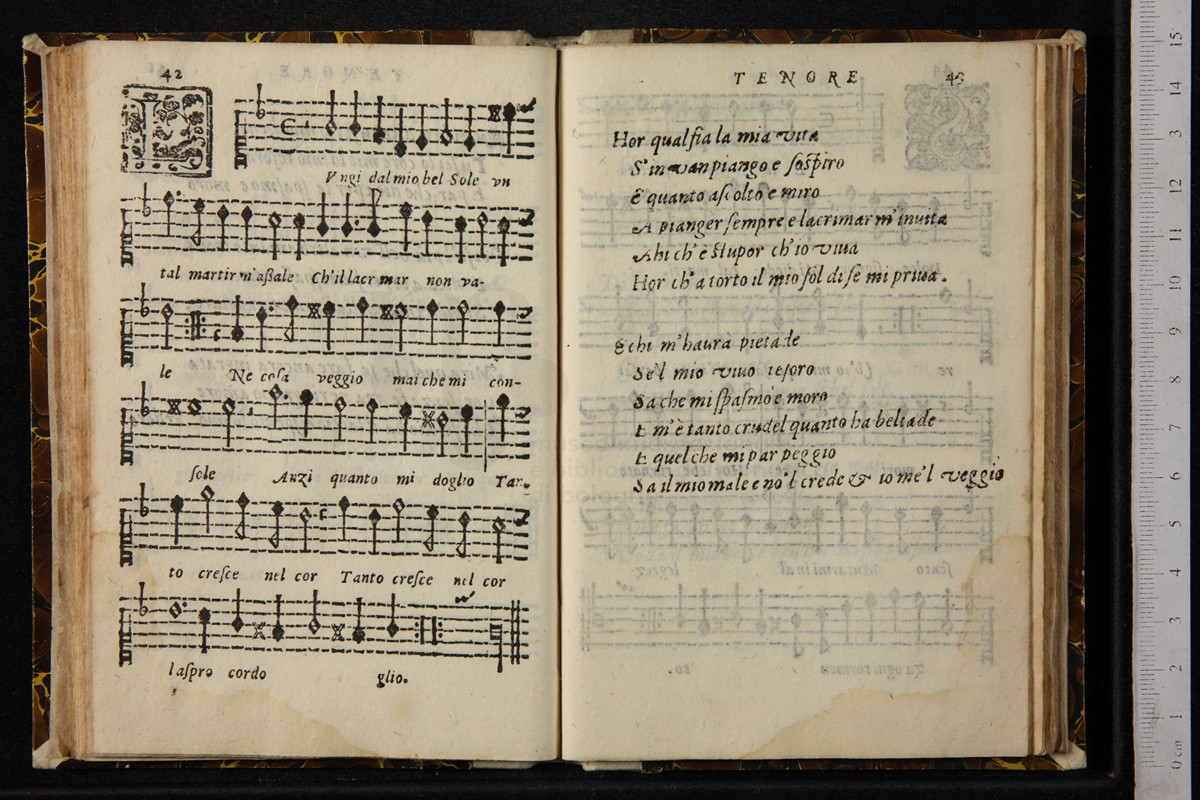 42
L
Vngi dal mio bel Sole vn
tal martir m'aſſale Ch'il lacrimar non va-
le Ne coſa veggio mai che mi con-
ſole Anzi quanto mi doglio Tan-
to creſce nel cor Tanto creſce nel cor
l aſpro cordo glio.
TENORE
43
Hor qual ſia la mia vita
S'in van piango e ſoſpiro
E quanto aſcolto e miro
A pianger ſempre e lacrimar m'inuita
Ahi ch'è ſtupor ch'io viua
Hor ch'a torto il mio ſol di ſe mi priua.
E chi m'haura pietade
Se'l mio viuo teſoro
Sa che mi ſpaſmo e moro
E m'è tanto crudel quanto ha beltade
E quel che mi par peggio
Sa il mio male e no'l crede & io me'l veggio
15
14
13
12
11
10
9
8
7
6
5
4
3
2
1
0 cm